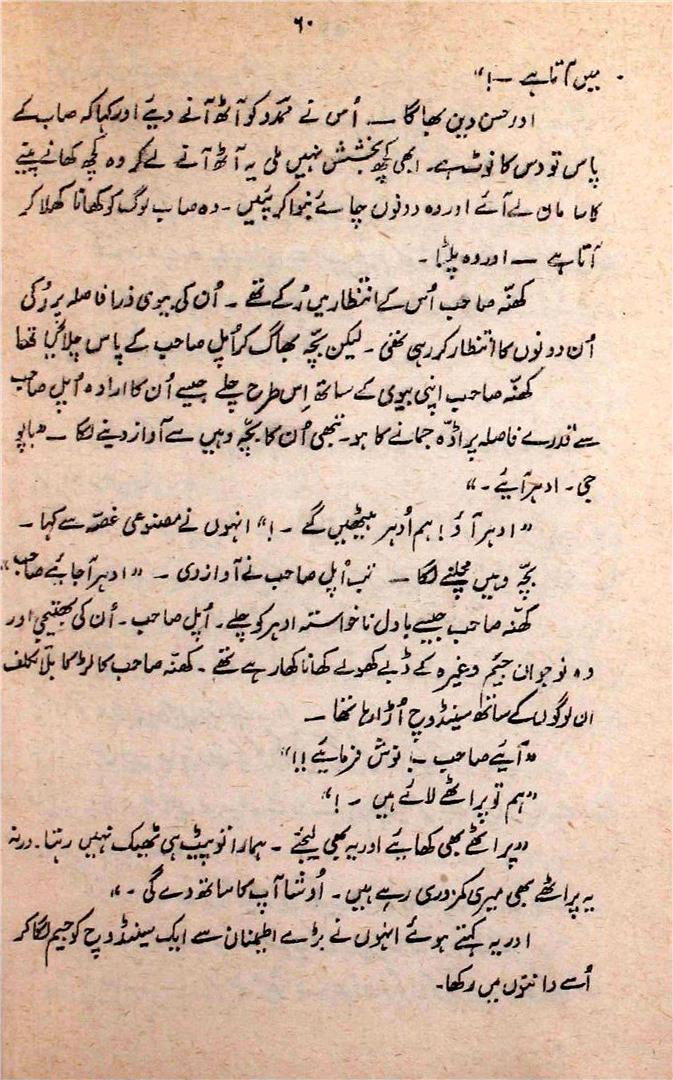 ۶۰
میں آتا ہے —!“
اور حسن دین بھاگا — اُس نے ممّدو کو آٹھ آنے دیئے اور کہا کہ صاب کے
پاس تو دس کا نوٹ ہے۔ ابھی کچھ بخشش نہیں ملی یہ آٹھ آنے لے کر وہ کچھ کھانے پینے
کا سامان لے آئے اور وہ دونوں چائے بنوا کر پئیں۔ وہ صاب لوگ کو کھانا کھلا کر
آتا ہے — اور وہ پلٹا۔
کھنّہ صاحب اُس کے انتظار میں رُکے تھے۔ اُن کی بیوی ذرا فاصلہ پر رُکی
اُن دونوں کا انتظار کر رہی تھی۔ لیکن بچّہ بھاگ کر اُپل صاحب کے پاس چلا گیا تھا
کھنّہ صاحب اپنی بیوی کے ساتھ اِس طرح چلے جیسے اُن کا ارادہ اُپل صاحب
سے قدرے فاصلہ پر اڈّہ جمانے کا ہو۔ تبھی اُن کا بچّہ وہیں سے آواز دینے لگا — ”باپو
جی۔ ادہر آیئے۔“
”ادہر آؤ! ہم اُدہر بیٹھیں گے —!“ انہوں نے مصنوعی غصّہ سے کہا —
بچّہ وہیں مچلنے لگا — تب اُپل صاحب نے آواز دی — ”ادہر آجایئے صاحب“
کھنّہ صاحب جیسے بادل ناخواستہ ادہر کو چلے۔ اُپل صاحب۔ اُن کی بھتیجی اور
وہ نوجوان جیم وغیرہ کے ڈبے کھولے کھانا کھا رہے تھے۔ کھنّہ صاحب کا لڑکا بلا تکلف
ان لوگوں کے ساتھ سینڈوچ اُڑا رہا تھا —
”آیئے صاحب —! نوش فرمایئے!!“
”ہم تو پراٹھے لائے ہیں —!“
”پراٹھے بھی کھایئے اور یہ بھی لیجئے — ہمارا تو پیٹ ہی ٹھیک نہیں رہتا۔ ورنہ
یہ پراٹھے بھی میری کمزوری رہے ہیں۔ اُوشا آپ کا ساتھ دے گی —“
اور یہ کہتے ہوئے انہوں نے بڑے اطمینان سے ایک سینڈوچ کو جیم لگا کر
اُسے دانتوں میں رکھا۔